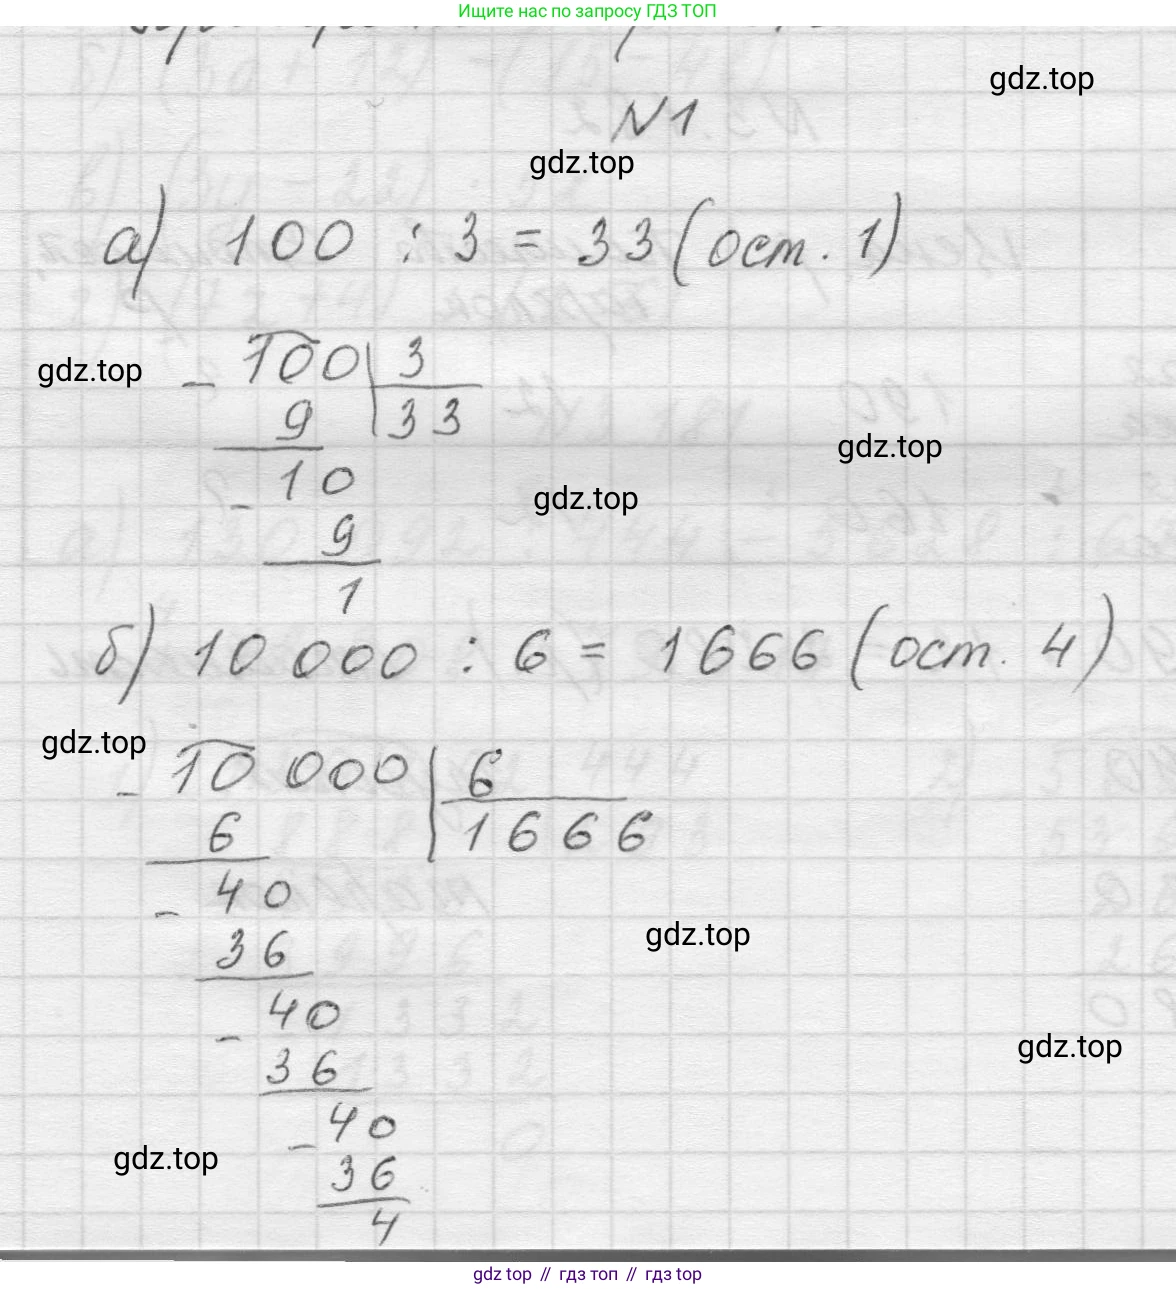 Ищите нас по запросу ГДЗ ТОП
gdz.top
N1
gdz.top
а) 100 : 3 = 33 (ост. 1)
gdz.top
- 100 | 3
9 | 33
gdz.top
- 10
gdz.top
9
1
б) 10 000 : 6 = 1666 (ост. 4)
gdz.top
- 10 000 | 6
6 | 1666
- 40
gdz.top
36
- 40
gdz.top
36
- 40
gdz.top
36
4
gdz top // гдз топ // гдз top